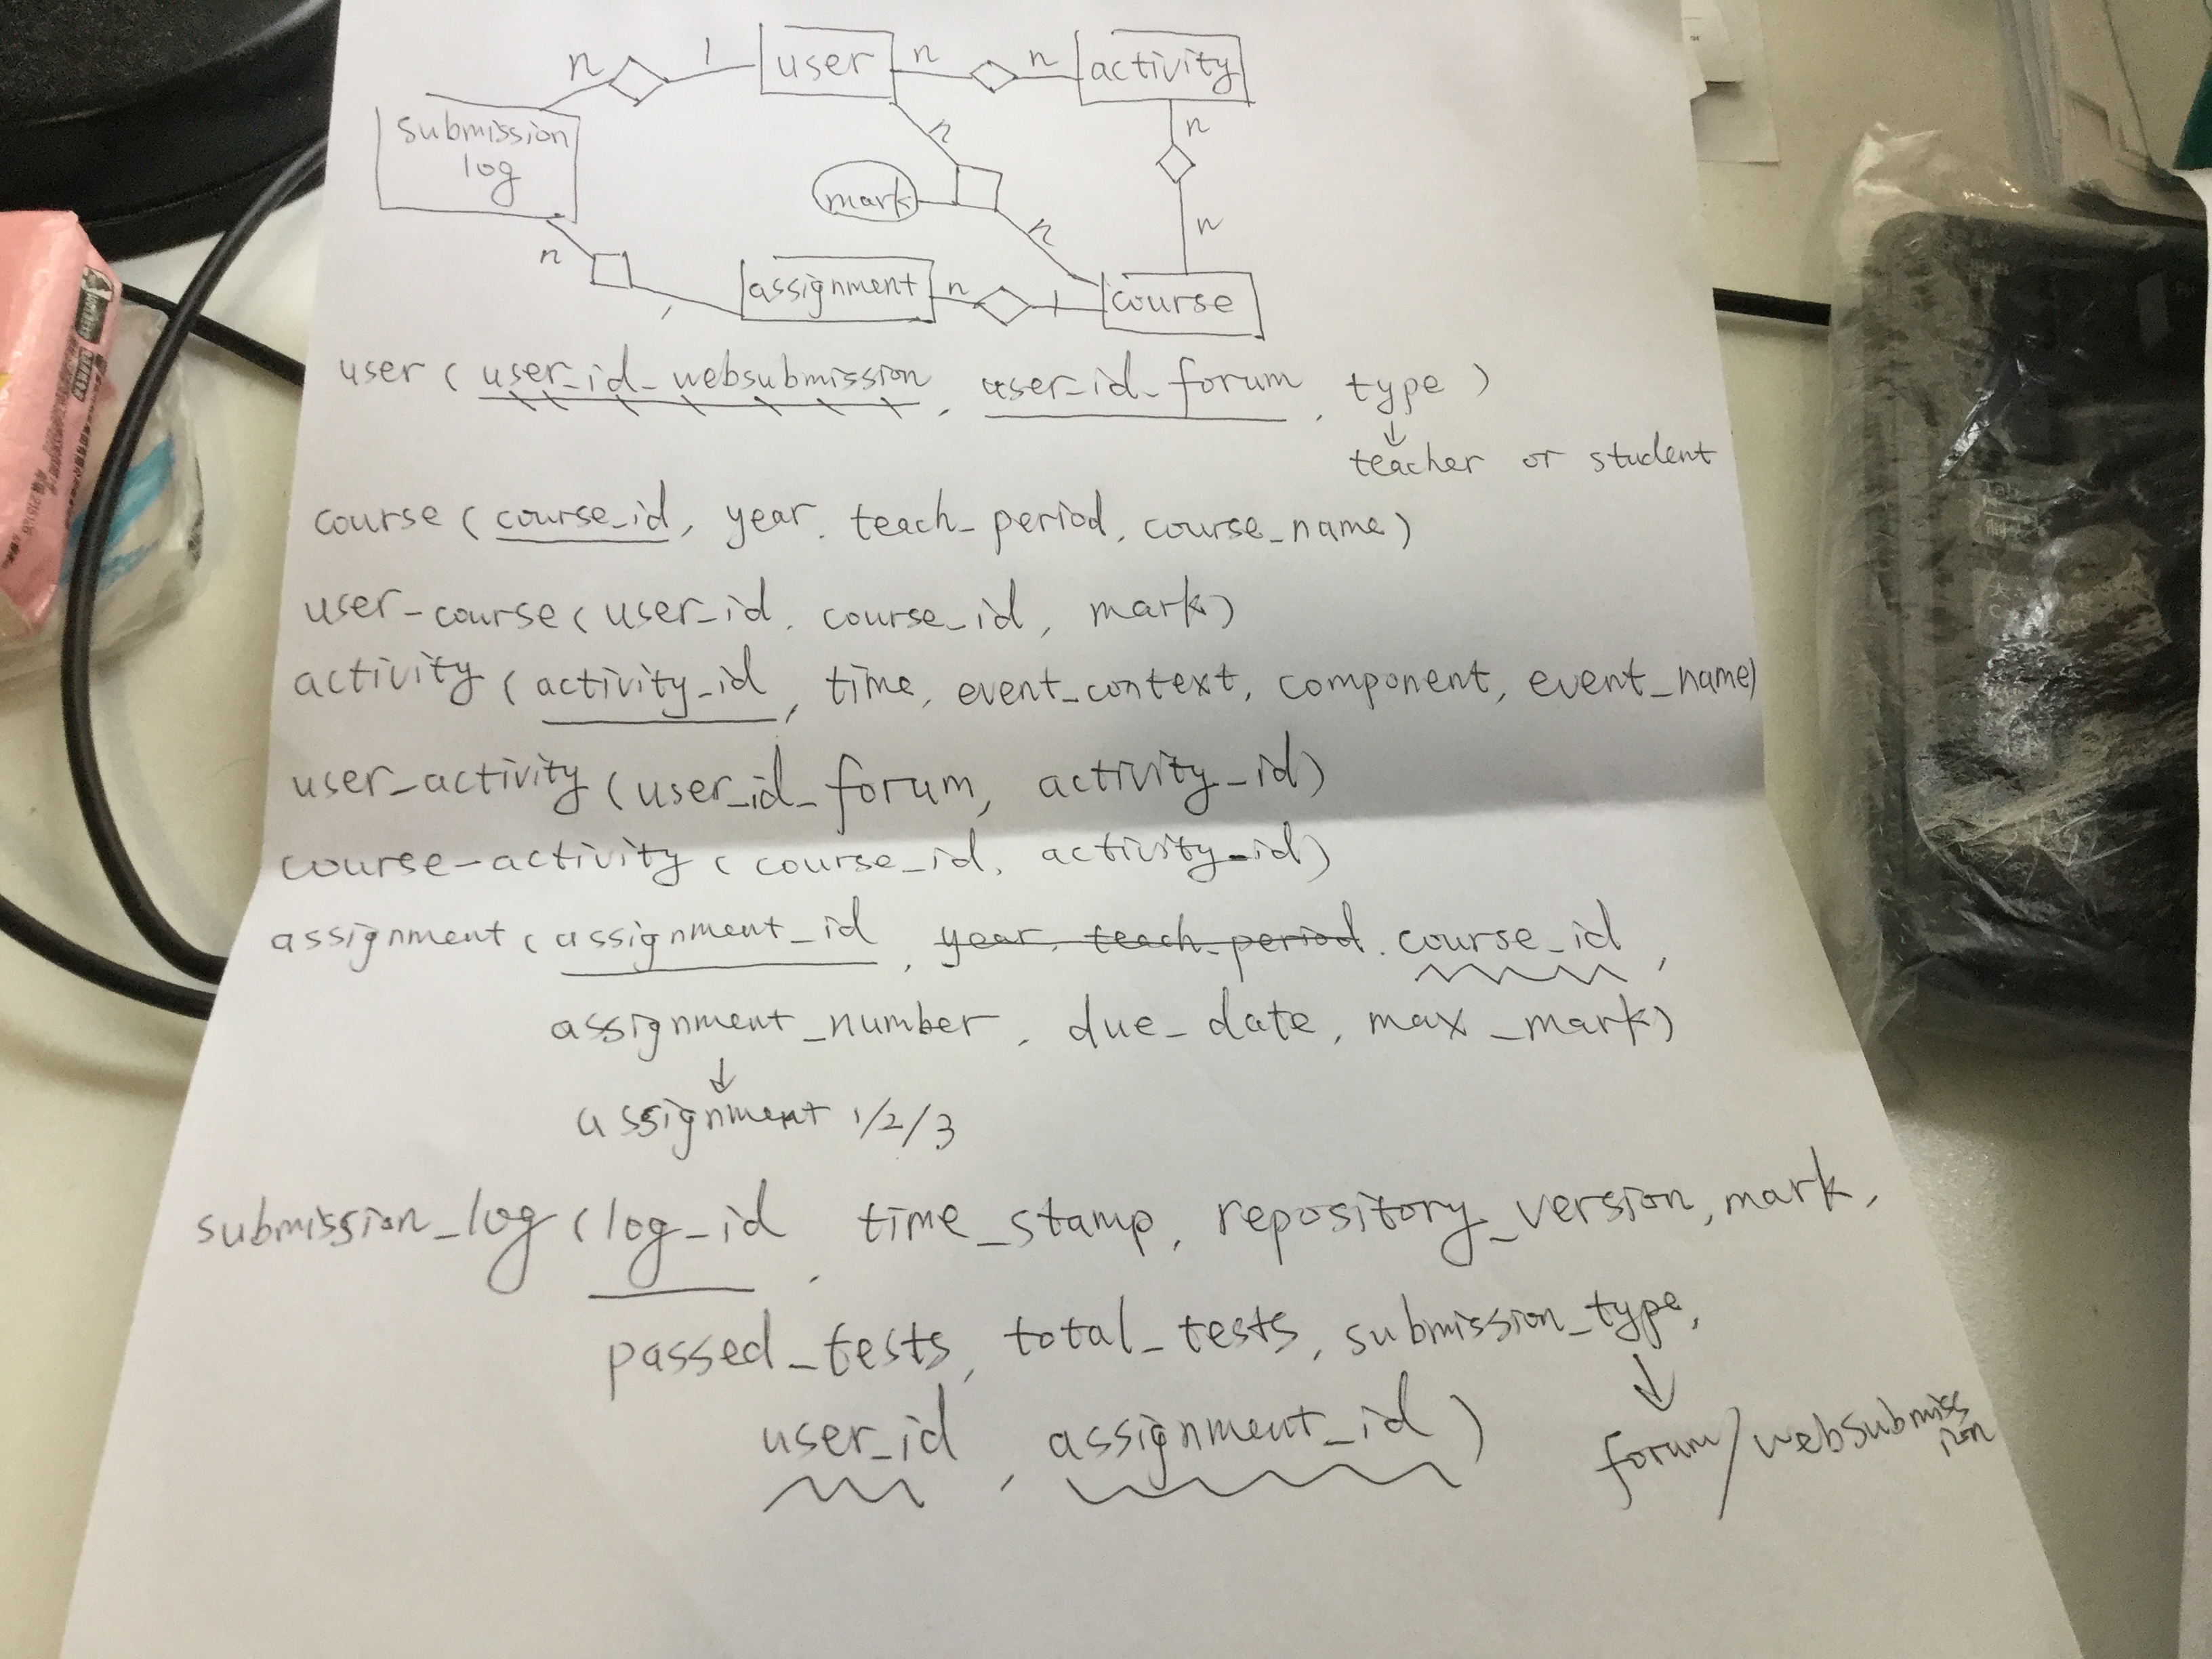 n 1 user n n activity
submission
log
n
n
mark
n
n
n
assignment n 1 course
user (user_id_websubmission, user_id_forum, type)
↓
teacher or student
course (course_id, year, teach_period, course_name)
user-course (user_id, course_id, mark)
activity (activity_id, time, event_context, component, event_name)
user_activity (user_id_forum, activity_id)
course-activity (course_id, activity_id)
assignment (assignment_id, year, teach_period, course_id,
assignment_number, due_date, max_mark)
↓
assignment 1/2/3
submission_log (log_id, time_stamp, repository_version, mark,
passed_tests, total_tests, submission_type,
↓
user_id, assignment_id)
forum/websubmission